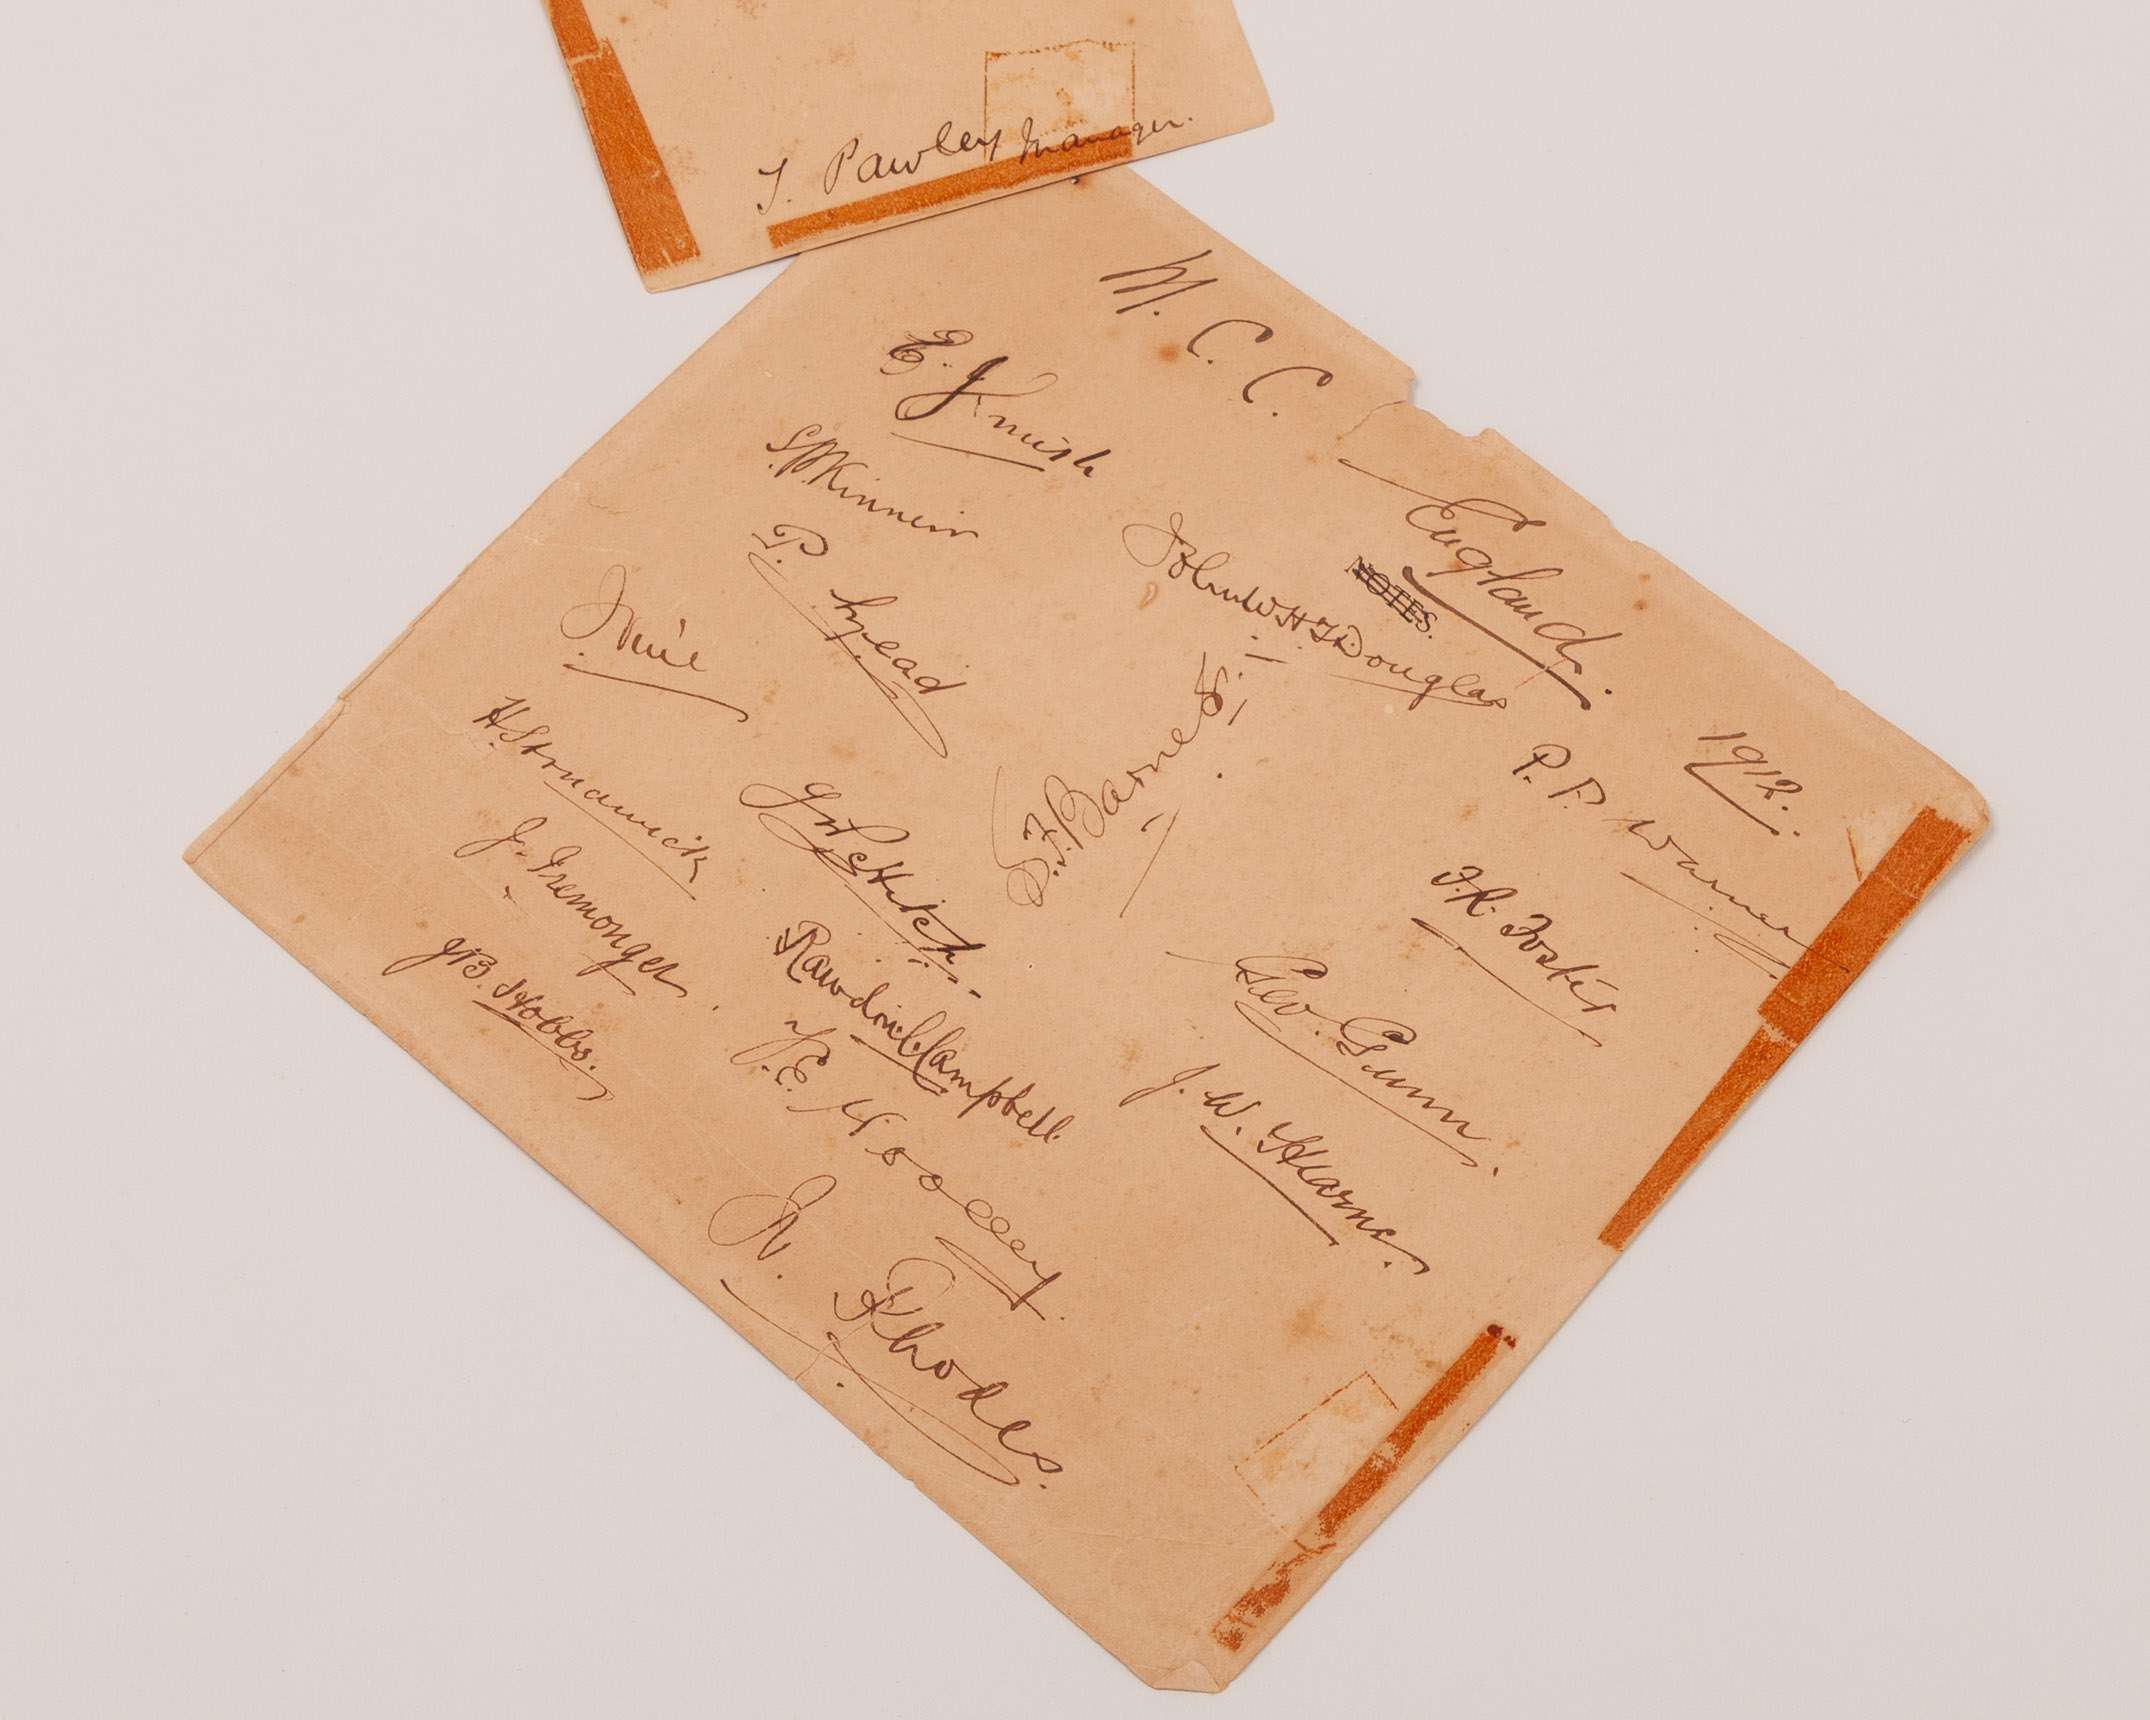 T. Pawley Manager.
M. C. C. England. 1912.
NOTES.
E. J. Smith
S.P. Kinneir
P. Mead
J Vine
H. Strudwick
J. Iremonger.
J.B. Hobbs.
John W.H.T. Douglas
S.F. Barnes.
J.W. Hitch.
Rawdon C. Campbell.
F. E. Woolley.
W. Rhodes.
P. F. Warner
F. R. Foster
Geo. Gunn.
J. W. Hearne.